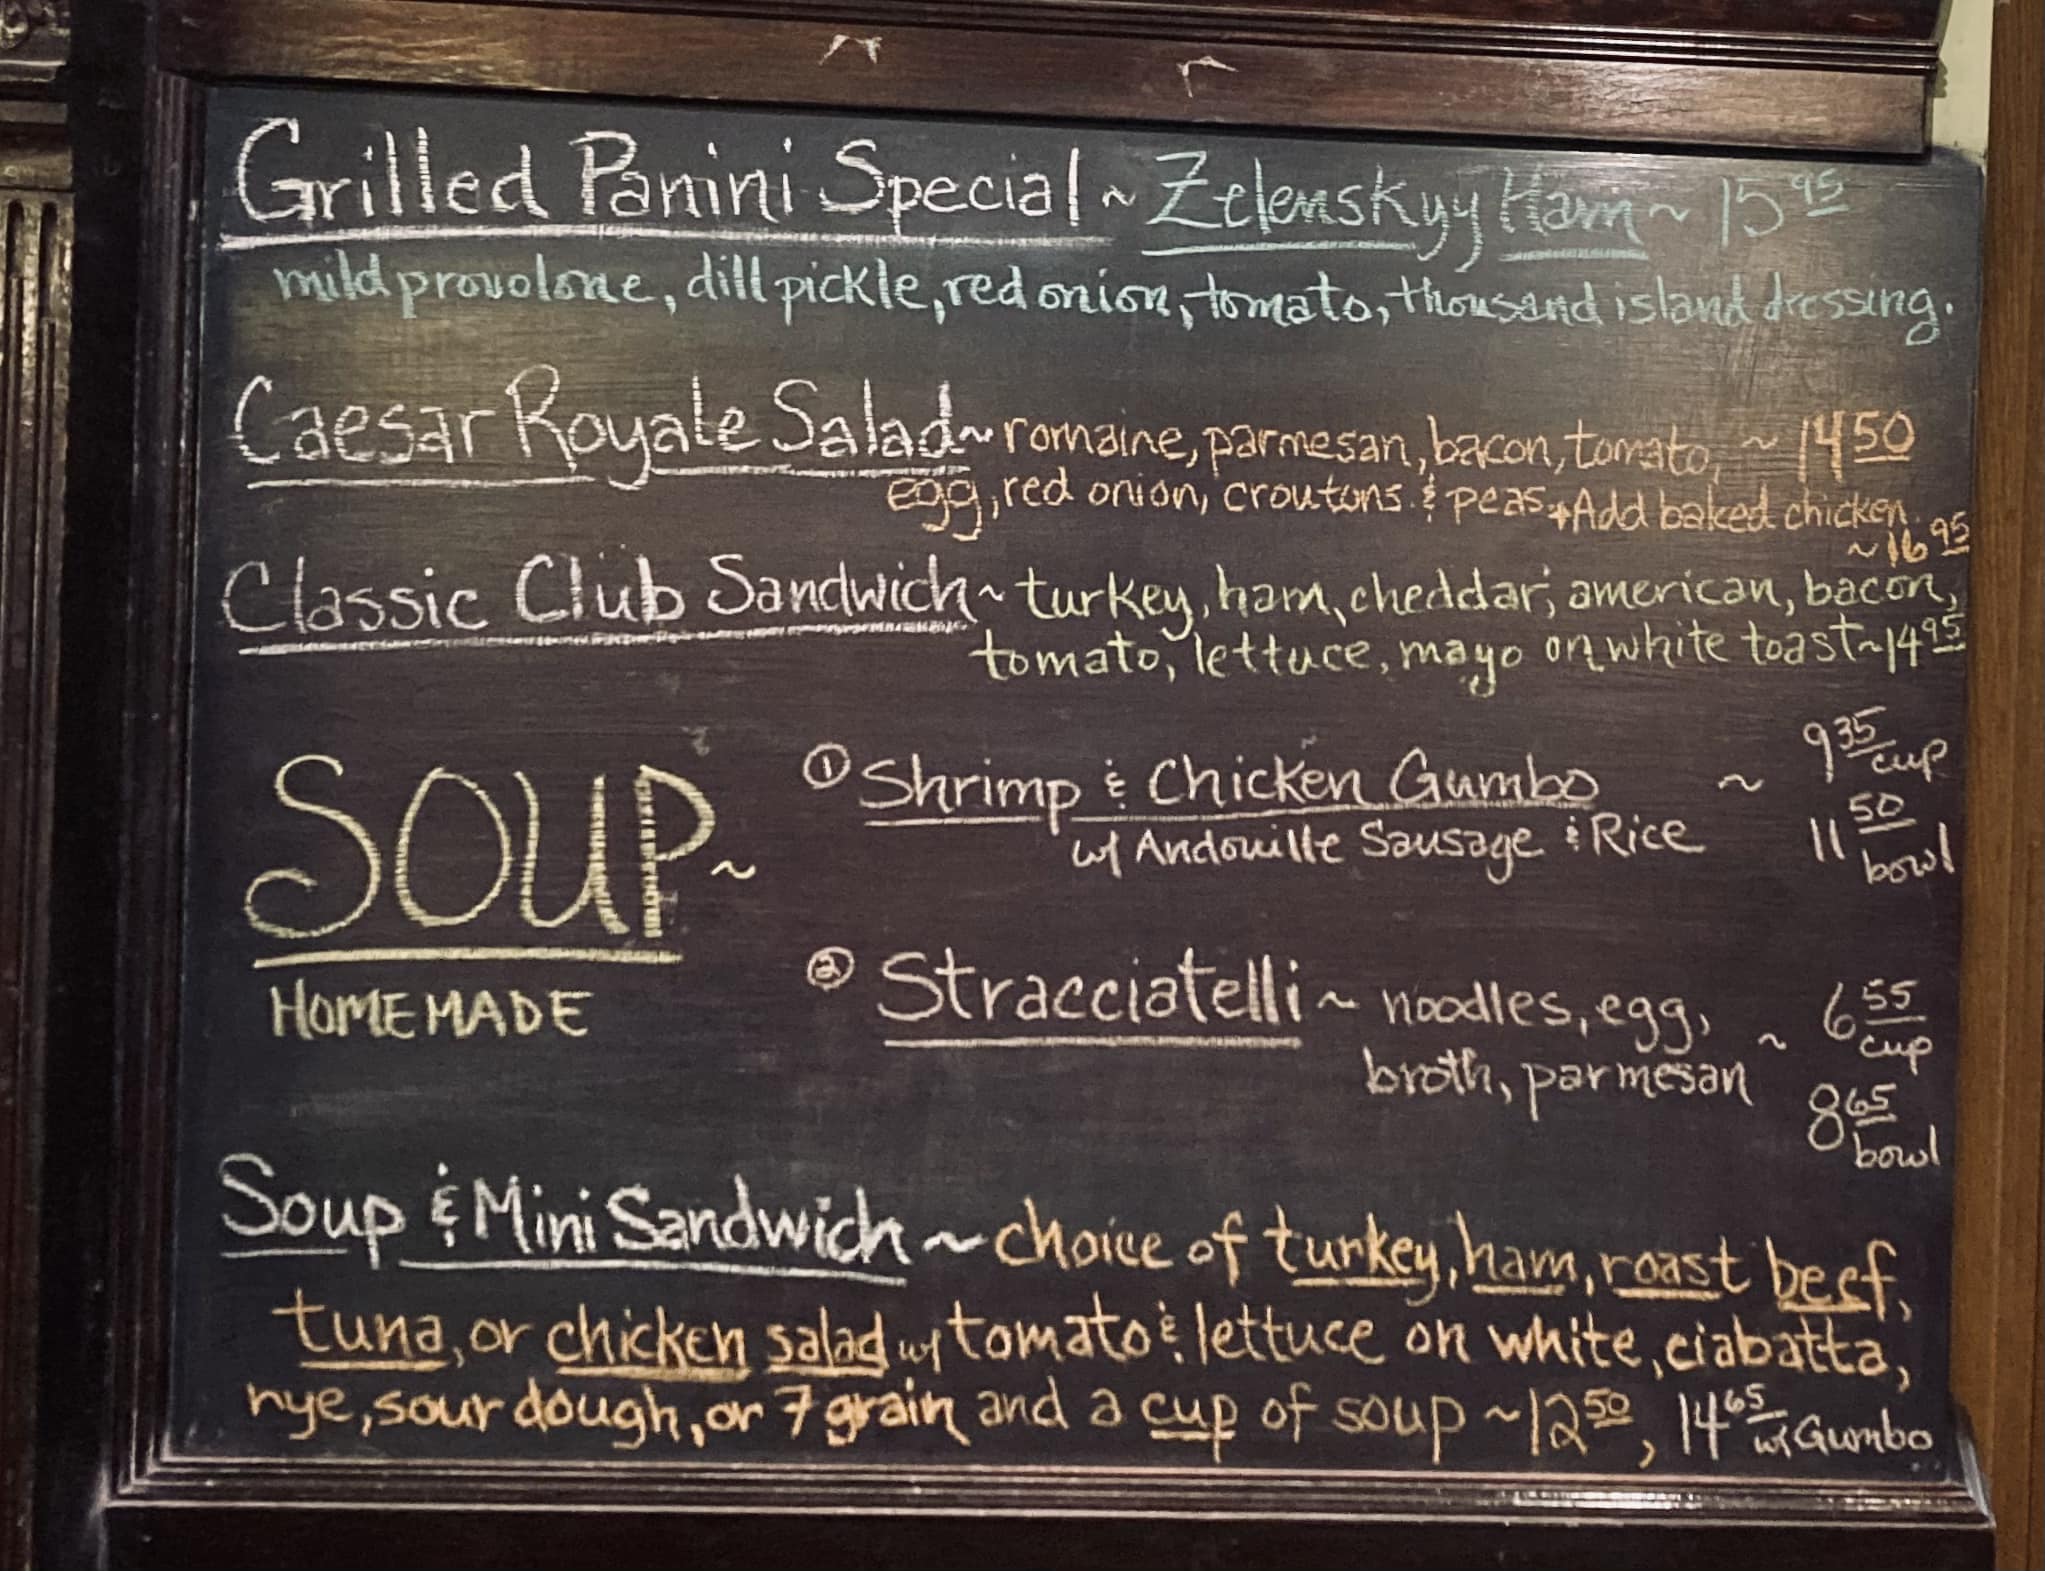 Grilled Panini Special ~ Zelenskyy Ham ~ 15 95
mild provolone, dill pickle, red onion, tomato, thousand island dressing.
Caesar Royale Salad ~ romaine, parmesan, bacon, tomato, ~ 14 50
egg, red onion, croutons & peas + Add baked chicken
~ 16 95
Classic Club Sandwich ~ turkey, ham, cheddar, american, bacon,
tomato, lettuce, mayo on white toast ~ 14 95
SOUP ~
HOMEMADE
① Shrimp & Chicken Gumbo ~ 9 35 cup
w/ Andouille Sausage & Rice 11 50 bowl
② Stracciatelli ~ noodles, egg, ~ 6 55 cup
broth, parmesan 8 65 bowl
Soup & Mini Sandwich ~ choice of turkey, ham, roast beef,
tuna, or chicken salad w/ tomato & lettuce on white, ciabatta,
rye, sour dough, or 7 grain and a cup of soup ~ 12 50, 14 65 w/ Gumbo